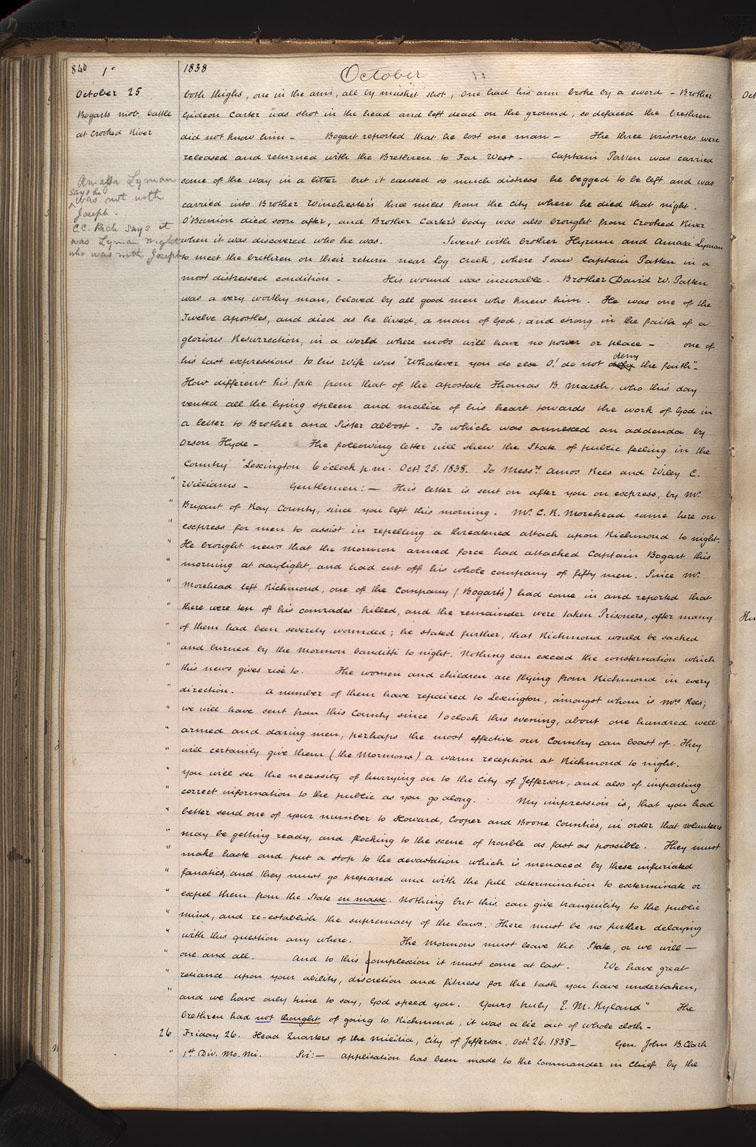 840
1838
October
October 25
Bogarts mob, battle
at Crooked River
Amasa Lyman
says he
was not with
Joseph.
C.C. Rich says it
was Lyman Wight
who was with Joseph
both thighs, one in the arm, all by musket shot, one had his arm broke by a sword - Brother
Gideon Carter was shot in the head and left dead on the ground, so defaced the brethren
did not know him - Bogart reported that he lost one man - The three prisoners were
released and returned with the Brethren to Far West - Captain Patten was carried
some of the way in a litter but it caused so much distress he begged to be left and was
carried into Brother Winchester's three miles from the city where he died that night.
O'Banion died soon after, and Brother Carter's body was also brought from Crooked River
when it was discovered who he was. I went with brother Hyrum and Amasa Lyman
to meet the brethren on their return near Log Creek, where I saw Captain Patten in a
most distressed condition - His wound was incurable. Brother David W. Patten
was a very worthy man, beloved by all good men who knew him. He was one of the
Twelve Apostles, and died as he lived, a man of God, and strong in the faith of a
glorious Resurrection, in a world where mobs will have no power or place - one of
his last expressions to his Wife was "Whatever you do else O! do not deny the faith" -
How different his fate from that of the apostate Thomas B. Marsh, who this day
vented all the lying spleen and malice of his heart towards the work of God in
a letter to Brother and Sister Abbot. To which was annexed an addenda by
Orson Hyde - The following letter will shew the State of public feeling in the
Country "Lexington 6 o'clock p.m. Oct. 25. 1838. To Messrs. Amos Rees and Wiley C.
" Williams - Gentlemen: - This letter is sent on after you on express, by Mr.
" Bryant of Ray County, since you left this morning. Mr. C. R. Morehead came here on
" express for men to assist in repelling a threatened attack upon Richmond to night.
" He brought news that the Mormon armed force had attacked Captain Bogart this
" morning at daylight, and had cut off his whole company of fifty men. Since Mr.
" Morehead left Richmond, one of the Company (Bogart's) had come in and reported that
" there were ten of his comrades killed, and the remainder were taken Prisoners, after many
" of them had been severely wounded; he stated further, that Richmond would be sacked
" and burned by the Mormon banditti to night. Nothing can exceed the consternation which
" this news gives rise to. The women and children are flying from Richmond in every
" direction. A number of them have repaired to Lexington, amongst whom is Mrs Rees;
" we will have sent from this County since 1 o'clock this evening, about one hundred well
" armed and daring men, perhaps the most effective our Country can boast of. They
" will certainly give them (the Mormons) a warm reception at Richmond to night.
" You will see the necessity of hurrying on to the City of Jefferson, and also of imparting
" correct information to the public as you go along. My impression is, that you had
" better send one of your number to Howard, Cooper and Boone Counties, in order that volunteers
" may be getting ready, and flocking to the scene of trouble as fast as possible. They must
" make haste and put a stop to the devastation which is menaced by these infuriated
" fanatics, and they must go prepared and with the full determination to exterminate or
" expel them from the State en masse. Nothing but this can give tranquility to the public
" mind, and re-establish the supremacy of the laws. There must be no further delaying
" with this question any where. The Mormons must leave the State, or we will -
" one and all. And to this complexion it must come at last. We have great
" reliance upon your ability, discretion and fitness for the task you have undertaken,
" and we have only time to say, God speed you. Yours truly E. M. Ryland" The
brethren had not thought of going to Richmond, it was a lie out of whole cloth -
26 Friday 26. Head Quarters of the Militia, City of Jefferson, Oct. 26. 1838 - Gen. John B. Clark
" 1st Div. Mo. Mi. Sir: - Application has been made to the Commander in Chief by the